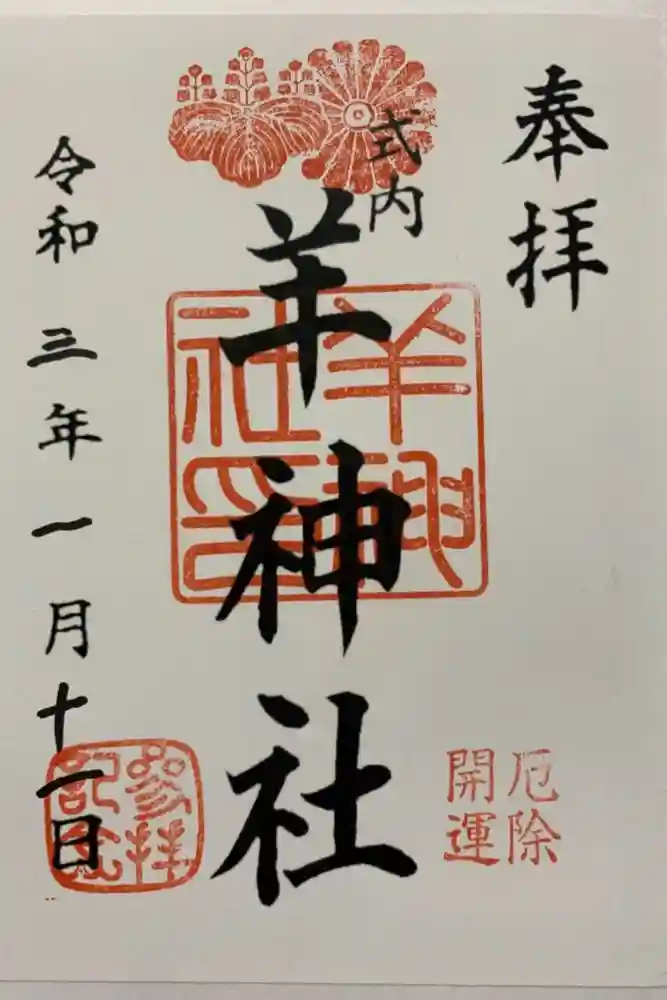 奉拝
式内
羊神社
羊神
社印
令和三年一月十一日
參拝
記念
厄除
開運